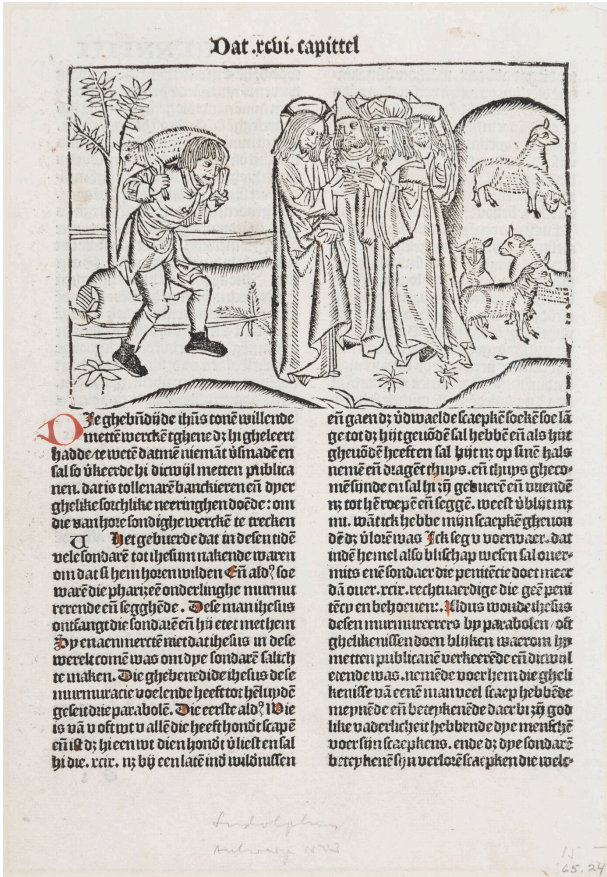 Dat .xcvi. capittel
Die ghebn̄dijde ihūs tonē willende
mettē wercke tghene dʒ hi gheleert
hadde/te wetē datmē niemāt v̓smadē en
sal so v̓keerde hi dicwijl metten publica
nen. dat is tollenarē banckieren en̄ dyer
ghelike sorchlike neeringhen doēde: om
die van hore sondighe werckē te trecken
U het gebuerde dat in desen tidē
vele sondarē tot ihesum nakende waren
om dat si hem horen wilden En̄ ald? soe
warē die pharizeē onderlinghe murmu
rerende en̄ segghēde. Dese man ihesus
ontfangt die sondarē en̄ hij etet met hem
Sy en aenmerctē niet dat ihesus in dese
werelt comē was om dye sondarē salich
te maken. Die ghebenedide ihesus dese
murmuracie voelende heeft tot hēluydē
geseit drie parabolē. Die eerste ald? Wie
is vā v oft wt v allē die heeft hondt scapē
en̄ ist dʒ hi een wt dien hondt v̓liest en sal
hi die .xcix. nʒ bij een latē ind wildnissen
en̄ gaen dʒ v̓dwaelde scaepkē soekē soe lā
ge tot dʒ hijt gevōdē sal hebbē en̄ als hijt
ghevōdē heeft en sal hijt nʒ op sinē hals
nemē en̄ dragēt thuys. en̄ thuys gheco-
mē sijnde en sal hi zij̄ gebuerē en̄ vriendē
nʒ tot hē roepē en̄ seggē. weest v̓blijt mʒ
mi. wāt ick hebbe mijn scaepkē ghevon
dē dʒ v̓lorē was Ick seg v voerwaer. dat
indē hemel also blischap wesen sal over-
mits enē sondaer die penitēcie doet meer
dā over .xcix. rechtuaerdige die geē peni
tēcy en behoeven:. Aldus woude ihesus
desen murmureerers by parabolen/oft
ghelikenissen doen blijken waerom hy
metten publicanē verkeerēde en̄ dicwijl
etende was. nemēde voer hem die gheli
kenisse vā eenē man veel scaep hebbēde
meynēde en̄ beteykenēde daer bi zij̄ god
like vaderlicheit hebbende dye menschē
voer sijn scaepkens. ende dʒ dye sondarē
beteykenē sijn verlorē scaepken die wel-
65.24